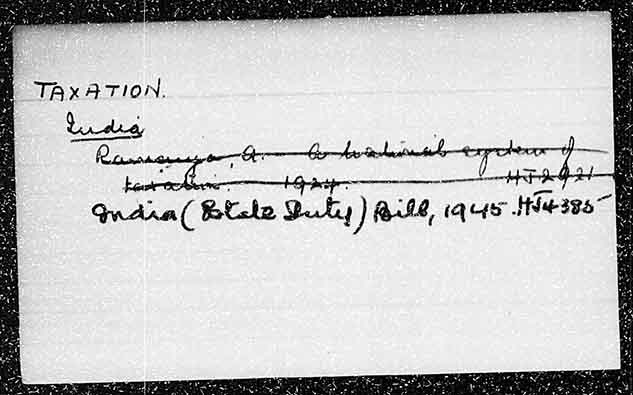 TAXATION.
India
Ramaiya, A. A national system of
taxation. 1924. HJ2921
India (Estate Duty) Bill, 1945. HJ4385